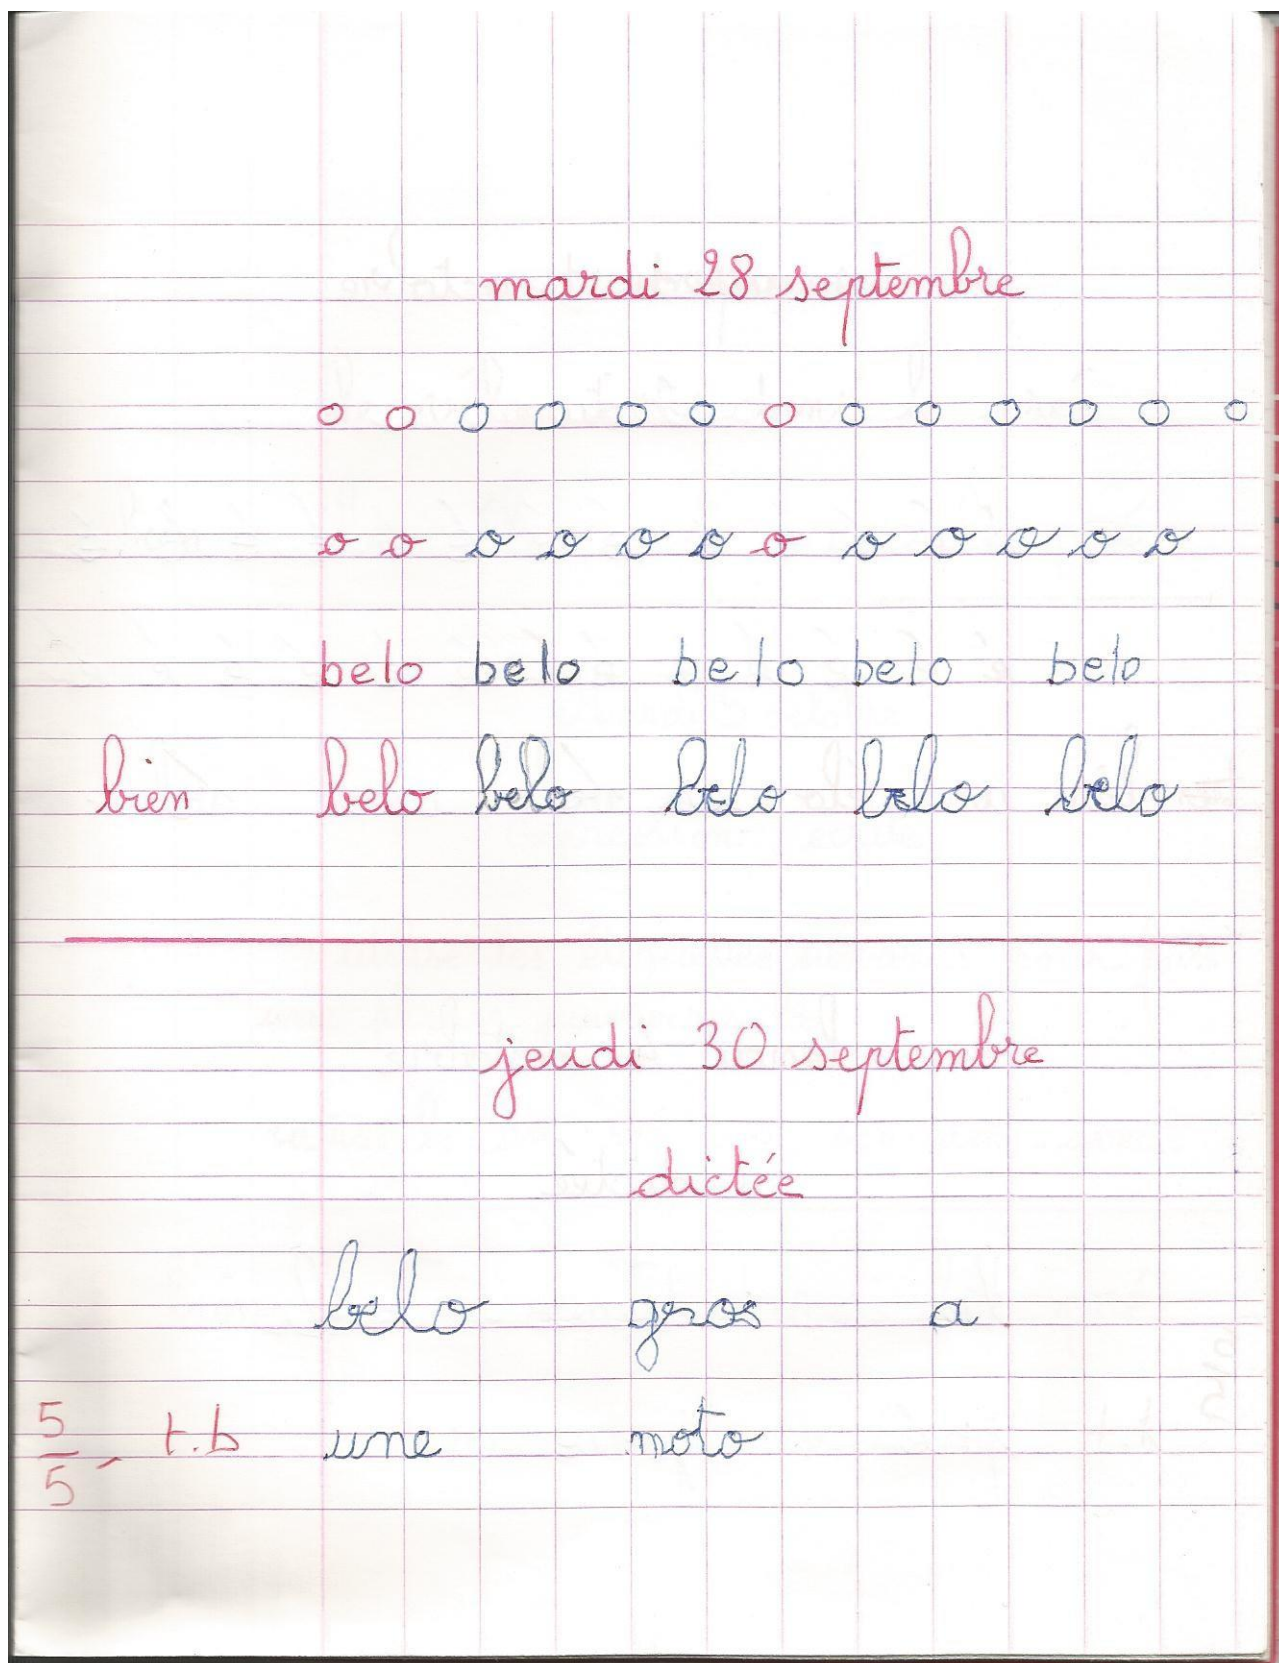 mardi 28 septembre
o o o o o o o o o o o o o
o o o o o o o o o o o o
belo belo belo belo belo
bien belo belo belo belo belo
jeudi 30 septembre
dictée
belo gros a
5/5 t.b une moto